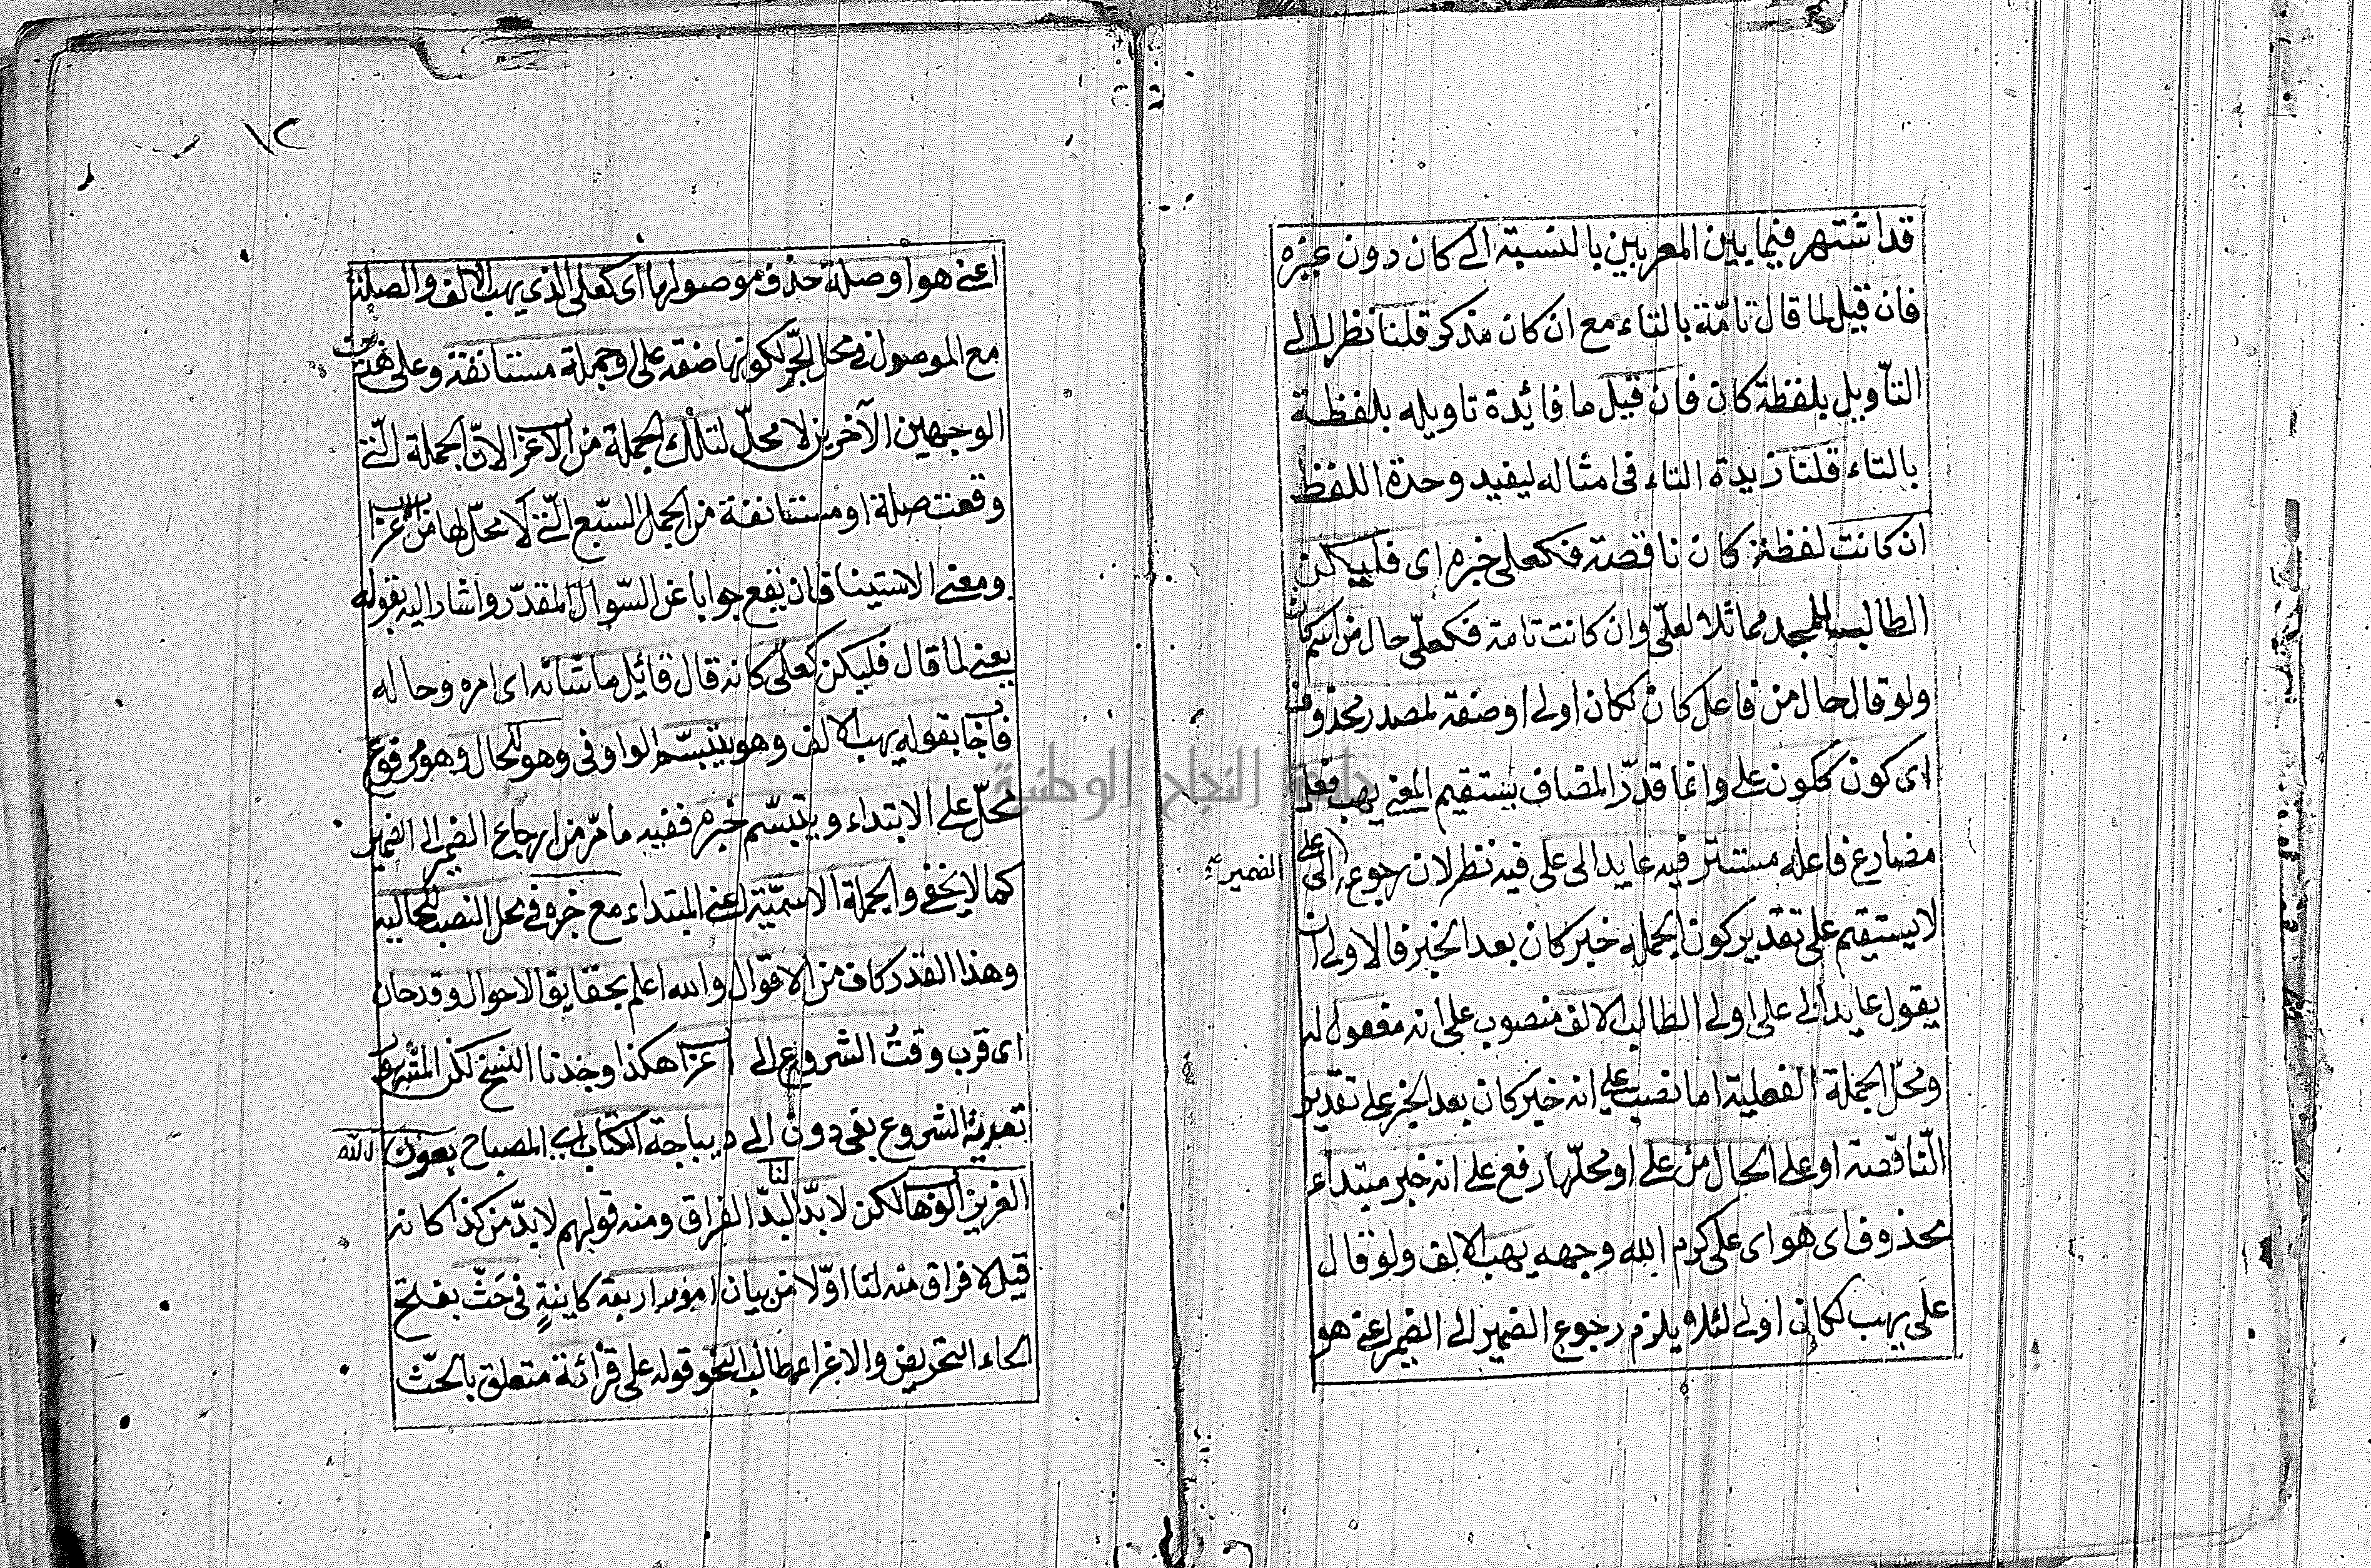 قد اشتهر فيما بين المعربين بالنسبة الى كان دون غيره
فان قيل لما قال تامّة بالتاء مع ان كان مذكر قلنا نظرا الى
التأويل بلفظة كان فان قيل ما فائدة تاويله بلفظة
بالتاء قلنا زيدة التاء فى امثاله ليفيد وحدة اللفظ
ان كانت لفظة كان ناقصة فكعلى خبره اى فليكن
الطالب للمجد مماثلا لعلى وان كانت تامة فكعلى حال من اسم كان
ولو قال حال من فاعل كان لكان اولى او صفة لمصدر محذوف
اى كون ككون على وانما قدّر المضاف يستقيم المعنى يهب فعل
مضارع فاعله مستتر فيه عايد الى على فيه نظر لان رجوعه الى على
الضمير
لا يستقيم على تقدير كون الجملة خبر كان بعد الخبر فالاولى ان
يقول عايد الى على اولى الطالب الالف منصوب على انه مفعول له
ومحلّ الجملة الفعلية اما نصب على انه خبر كان بعد الخبر على تقدير
النّاقصة او على الحال من على او محلّها رفع على انه خبر مبتداء
محذوف اى هو اى على كرم الله وجهه يهب الالف ولو قال
على يهب لكان اولى لئلا يلزم رجوع الضمير الى الضمير اعنى هو
١٢
اعنى هو او صلة حذف موصولها اى كعلى الذي يهب الالف والصلة
مع الموصول فى محل الجّر لكونها صفة على او جملة مستانفة وعلى هذين
الوجهين الآخرين لا محلّ لتلك الجملة من الاعراب لانّ الجملة الّتى
وقعت صلة او مستانفة من الجمل السّبع الّتى لا محلّ لها من الاعراب
ومعنى الاستيناف ان يقع جوابا عن السّوال المقدّر واشار اليه بقوله
يعنى لما قال فليكن كعلى كانه قال قائيل ما شانه اى امره وحاله
فاجاب بقوله يهب الالف وهو يتبسّم الواو فى وهو للحال وهو مرفوع
محلّ على الابتداء ويتبسّم خبره ففيه ما مرّ من ارجاع الضمير الى الضمير
كما لا يخفى والجملة الاسمّية اعنى المبتداء مع خبره فى محل النصب للحالية
وهذا القدر كاف من الاقوال والله اعلم بحقايق الاحوال وقد حان
اى قرب وقتُ الشروع الى اعراب هكذا وجدنا النسخ لكن المشهور
تعدية الشروع بفى دون الى ديباجة الكتاب اى المصباح بعون الله
العزيز الوهاب لكن لا بدّ لنا البدّ الفراق ومنه قولهم لا بدّ من كذا كانه
قيل لا فراق منه لنا اوّلا من بيان امور اربعة كاينةٍ فى حَثّ بفتح
الحاء التحريض والاغراء طالب النحو قوله على قرائة متعلق بالحّث